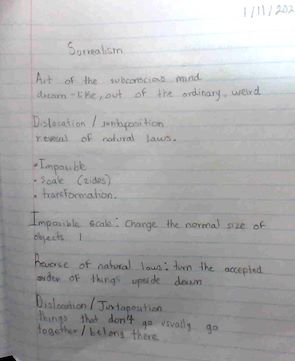 1/11/202
Surrealism
Art of the subconscious mind
dream-like, out of the ordinary, weird
Dislocation / juxtaposition
reversal of natural laws.
• Impossible
• Scale (sides)
• transformation.
Impossible scale: Change the normal size of
objects.
Reverse of natural laws: turn the accepted
order of things upside down
Dislocation / Juxtaposition
things that don't go usually go
together / belong there